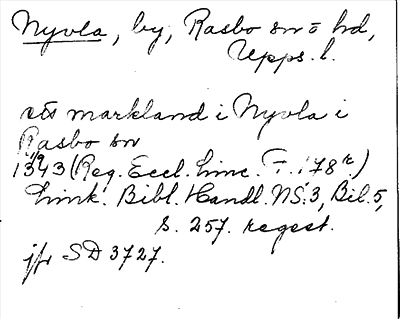 Nyvla, by, Rasbo sn o hd,
Upps. l.
ett markland i Nyvla i
Rasbo sn
1343 (Reg. Eccl. Linc. F. 178 r.)
Link. Bibl. Handl. NS. 3, Bil. 5,
s. 257. regest.
jfr SD 3727.